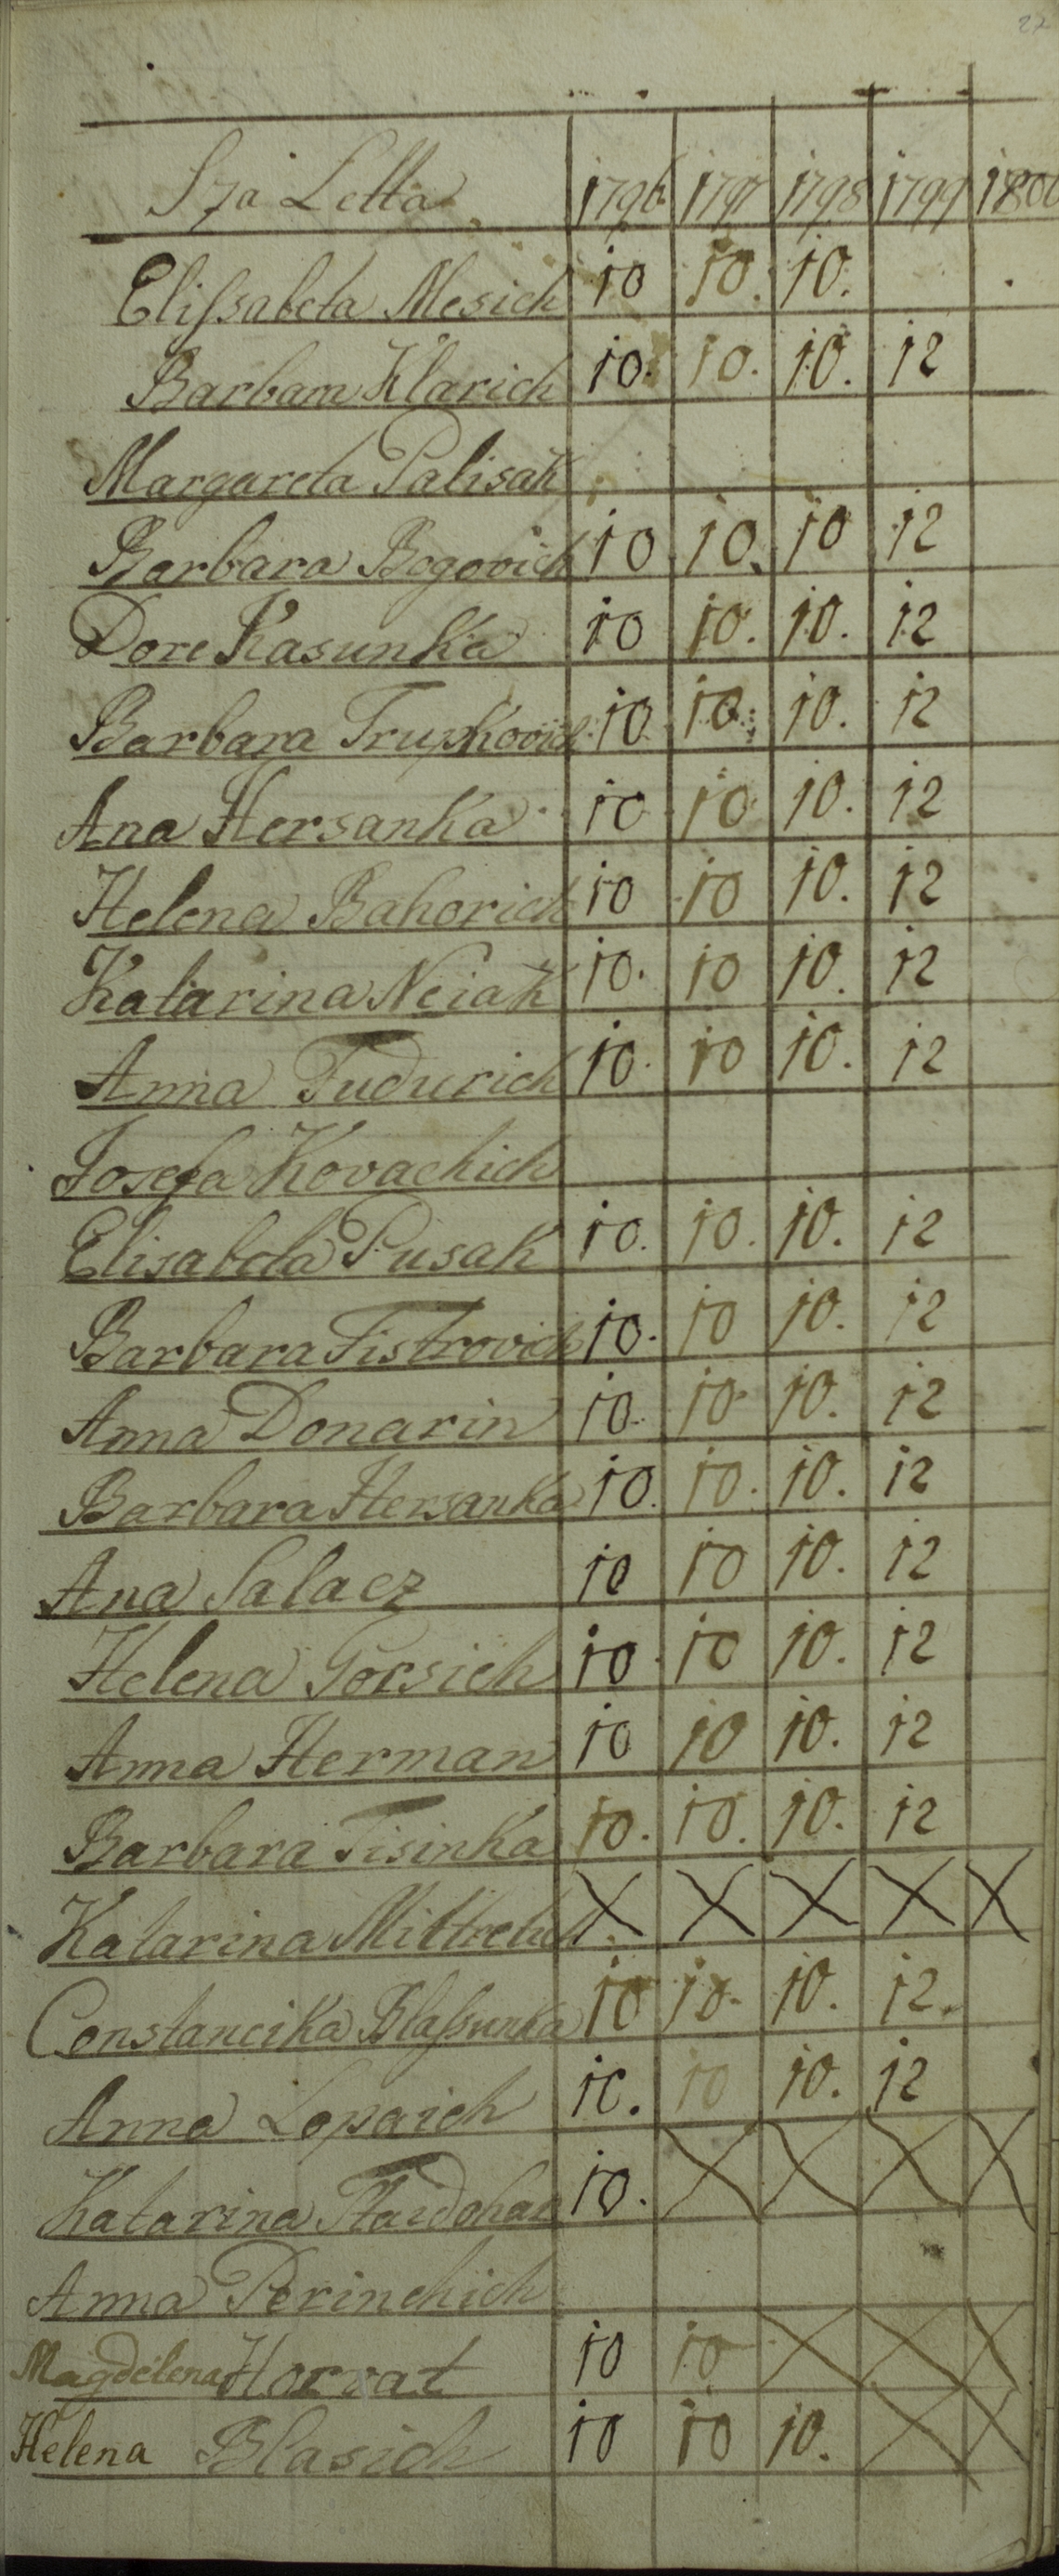 27
Sza Letta 1796 1797 1798 1799 1800
Elissabeta Mesich 10 10. 10.
Barbara Klarich 10. 10. 10. 12
Margareta Palisak
Barbara Bogovich 10 10. 10 12
Dore Kasunka 10 10. 10. 12
Barbara Trupkovich 10 10. 10. 12
Ana Hersanka 10 10 10. 12
Helena Bahorich 10 10 10. 12
Katarina Neiak 10. 10 10. 12
Anna Tudurich 10. 10 10. 12
Josefa Kovachich
Elisabeta Pusak 10. 10. 10. 12
Barbara Tistrovich 10. 10 10. 12
Anna Donarin 10. 10 10. 12
Barbara Hersanka 10. 10. 10. 12
Ana Salacz 10 10 10. 12
Helena Gorsich 10 10 10. 12
Anna Herman 10 10 10. 12
Barbara Tisinka 10. 10. 10. 12
Katarina X X X X X
Constancika Blassunka 10 10. 10. 12.
Anna Lopaich 10. 10 10. 12
Katarina 10. X X X X
Anna Perinchich
Magdelena Horvat 10 10 X X X
Helena Blasich 10 10 10. X X